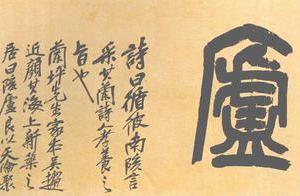 廬
詩曰循彼南陔言
采其蘭詩人孝養之
旨也
蘭坪先生家本吳趨
近顏其海上新築之
居曰陔廬良以天倫聚